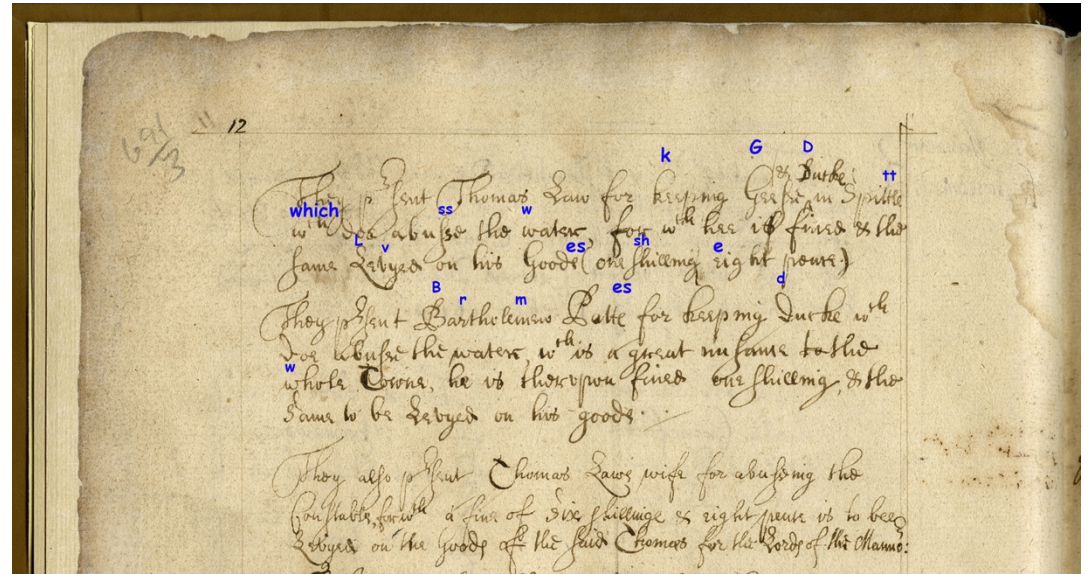 691/3
11
12
k G D
& Ducke
tt
They p'sent Thomas Law for keeping Geese in Spittle
which ss w
wth doe abusse the water, for wth hee is fined & the
L v es sh e
same Levyed on his Goodes (one shilling eight pence)
B r m es d
They p'sent Bartholemew Batte for keeping Ducke wth
doe abusse the water, wth is a great nusanc to the
w
whole Towne, he is therupon fined one shilling, & the
same to be Levyed on his goods.
They also p'sent Thomas Laws wife for abusing the
Constable, for wth a fine of sixe shillinge & eight pence is to bee
Levyed on the Goods of the said Thomas for the Lords of the Manno: